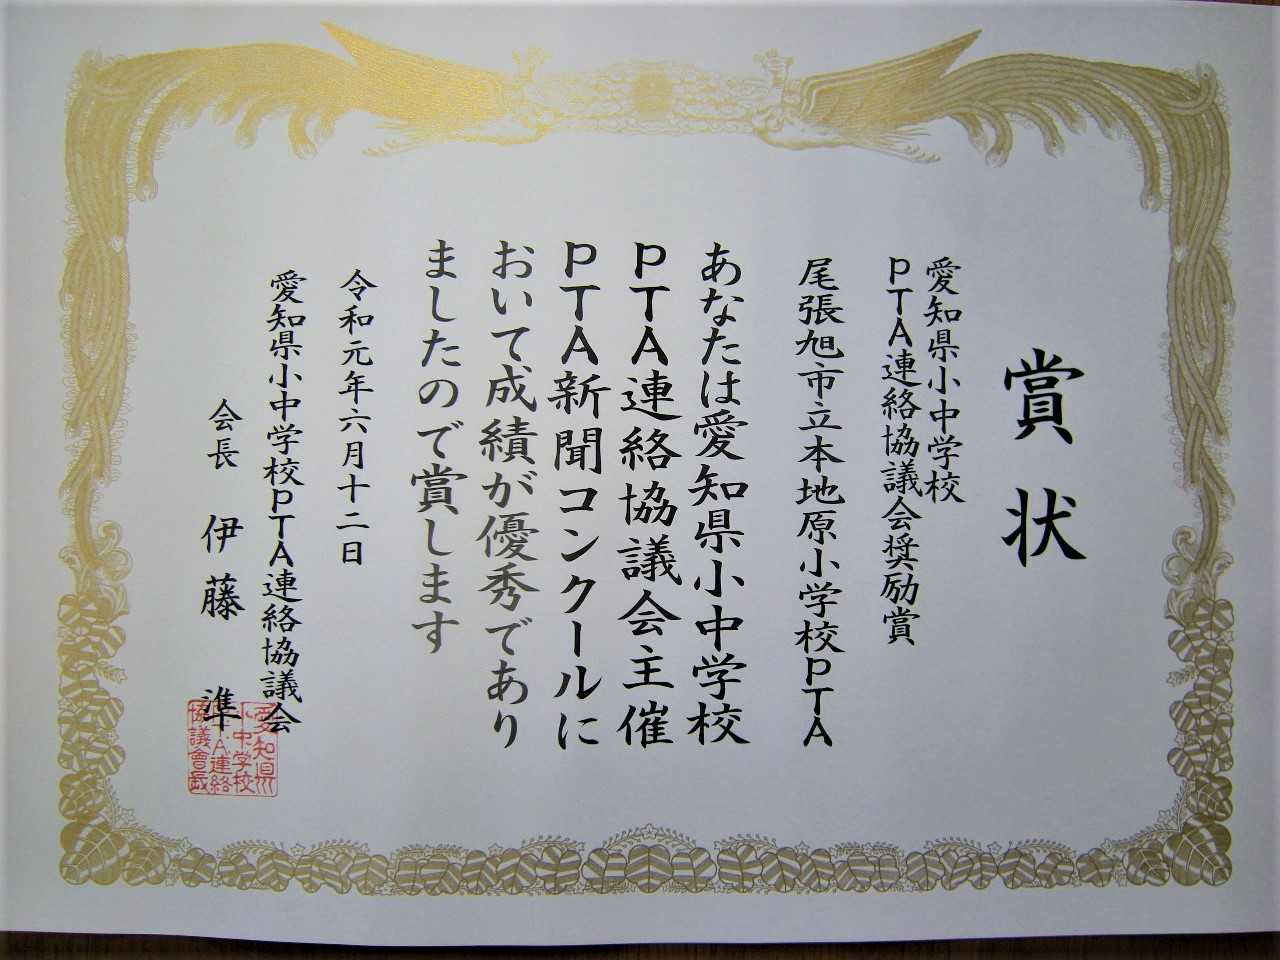 賞状
愛知県小中学校
PTA連絡協議会奨励賞
尾張旭市立本地原小学校PTA
あなたは愛知県小中学校
PTA連絡協議会主催
PTA新聞コンクールに
おいて成績が優秀であり
ましたので賞します
令和元年六月十二日
愛知県小中学校PTA連絡協議会
会長 伊藤 準
愛知県
小中学校
P.T.A.連絡
協議會長